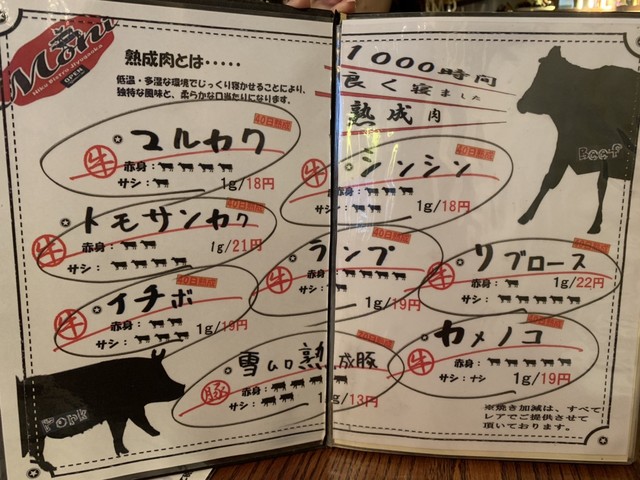 Moni
OPEN
熟成肉とは・・・・・
低温・多湿な環境でじっくり寝かせることにより、
独特な風味と、柔らかな口当たりになります。
40日熟成
マルカワ
牛
赤身：
サシ：
1g/18円
トモサンカク
牛
赤身：
サシ：
1g/21円
40日熟成
イチボ
牛
赤身：
サシ：
1g/19円
Pork
1000時間
良く寝ました
熟成肉
Beef
40日熟成
シンシン
牛
赤身：
サシ：
1g/18円
40日熟成
ランプ
牛
赤身：
サシ：
1g/19円
リブロース
牛
赤身：
サシ：
1g/22円
雪ムロ熟成豚
豚
赤身：
サシ：
1g/13円
カメノコ
牛
赤身：
サシ：ナシ
1g/19円
※焼き加減は、すべて
レアでご提供させて
頂いております。